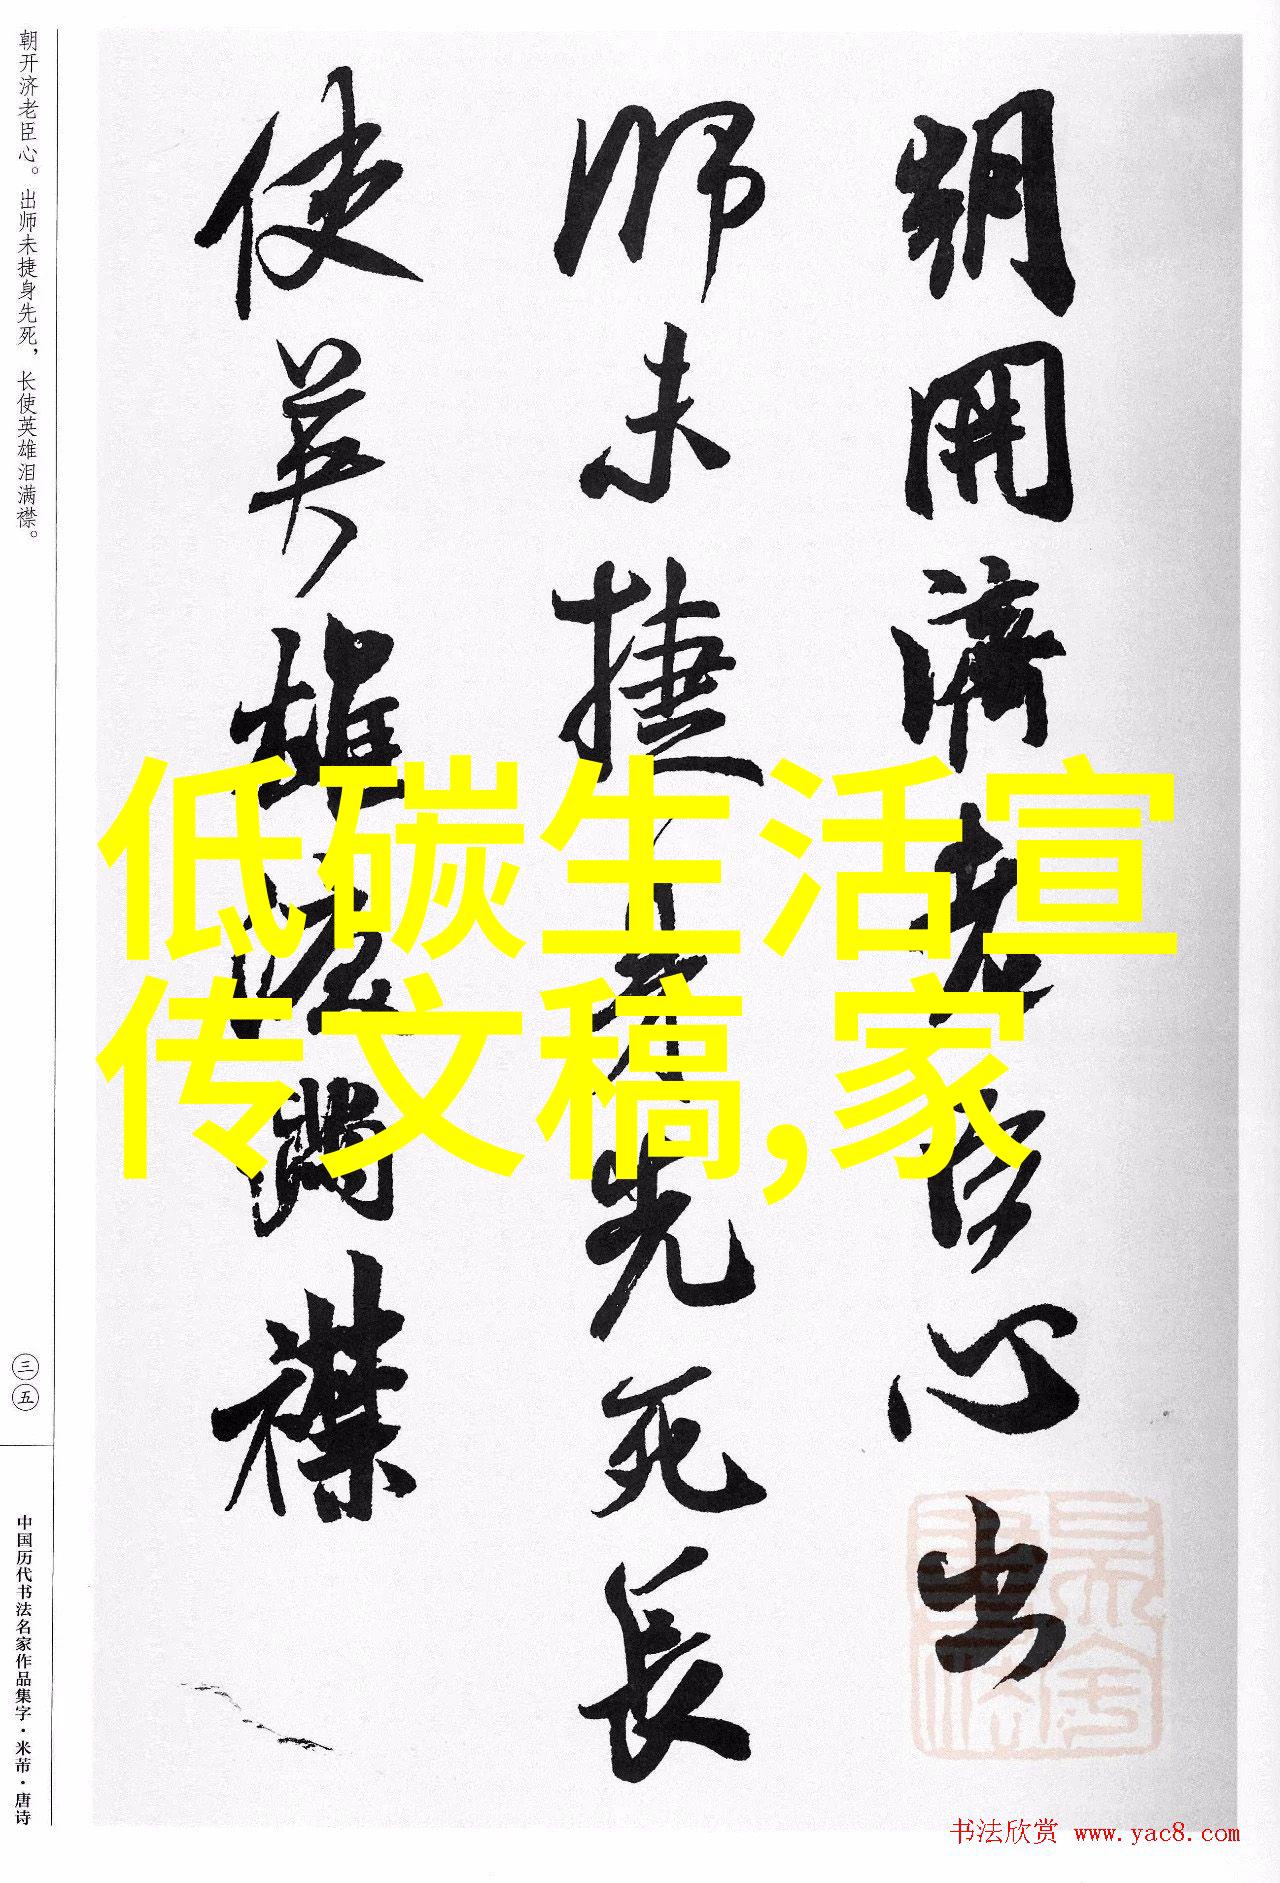 朝开济老臣心。出师未捷身先死，长使英雄泪满襟。
三五
中国历代书法名家作品集字·米芾·唐诗
朝開濟老臣心出
師未捷身先死長
使英雄淚滿襟
低碳生活宣
传文稿,家
书法欣赏 www.yac8.com